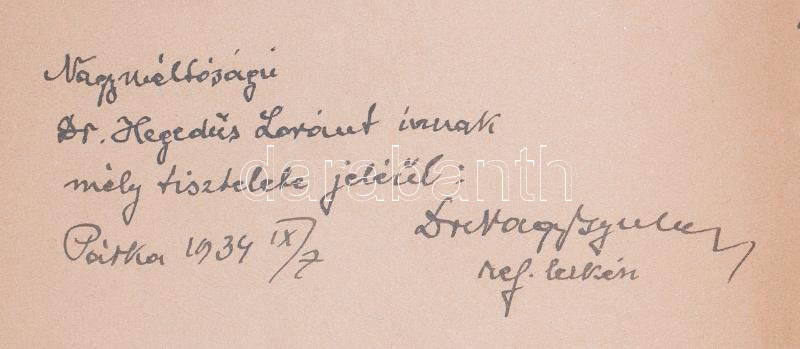 Nagyméltóságú
Dr. Hegedűs Loránt úrnak
mély tisztelete jeléül:
darabanth
Pátka 1934 IX/7
Dr. Nagy Gyula
ref. lelkész